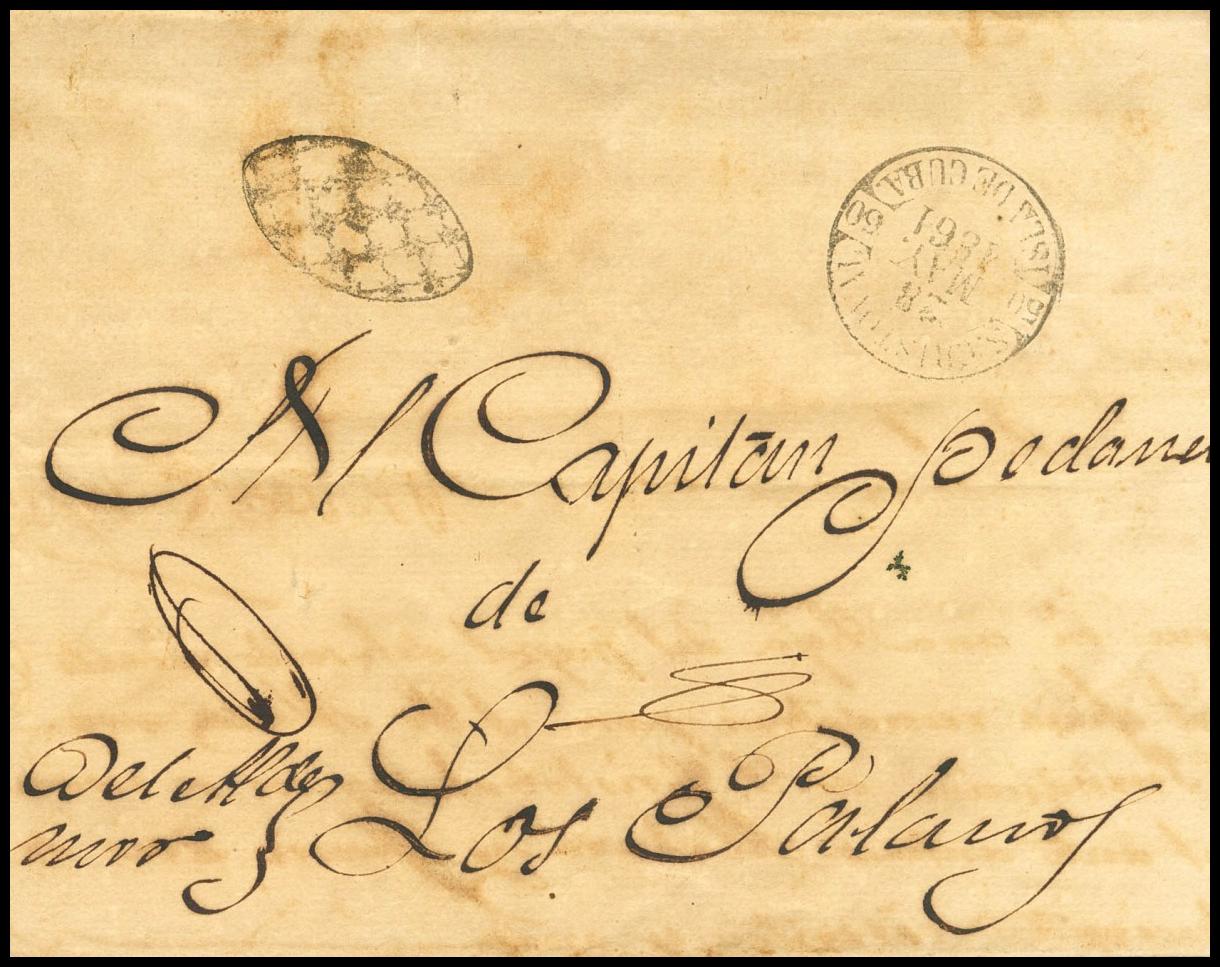 ISLA DE CUBA
28
MAY
1861
Al Capitan pedaneo
de
Los Palacios
Del Alcde
mor